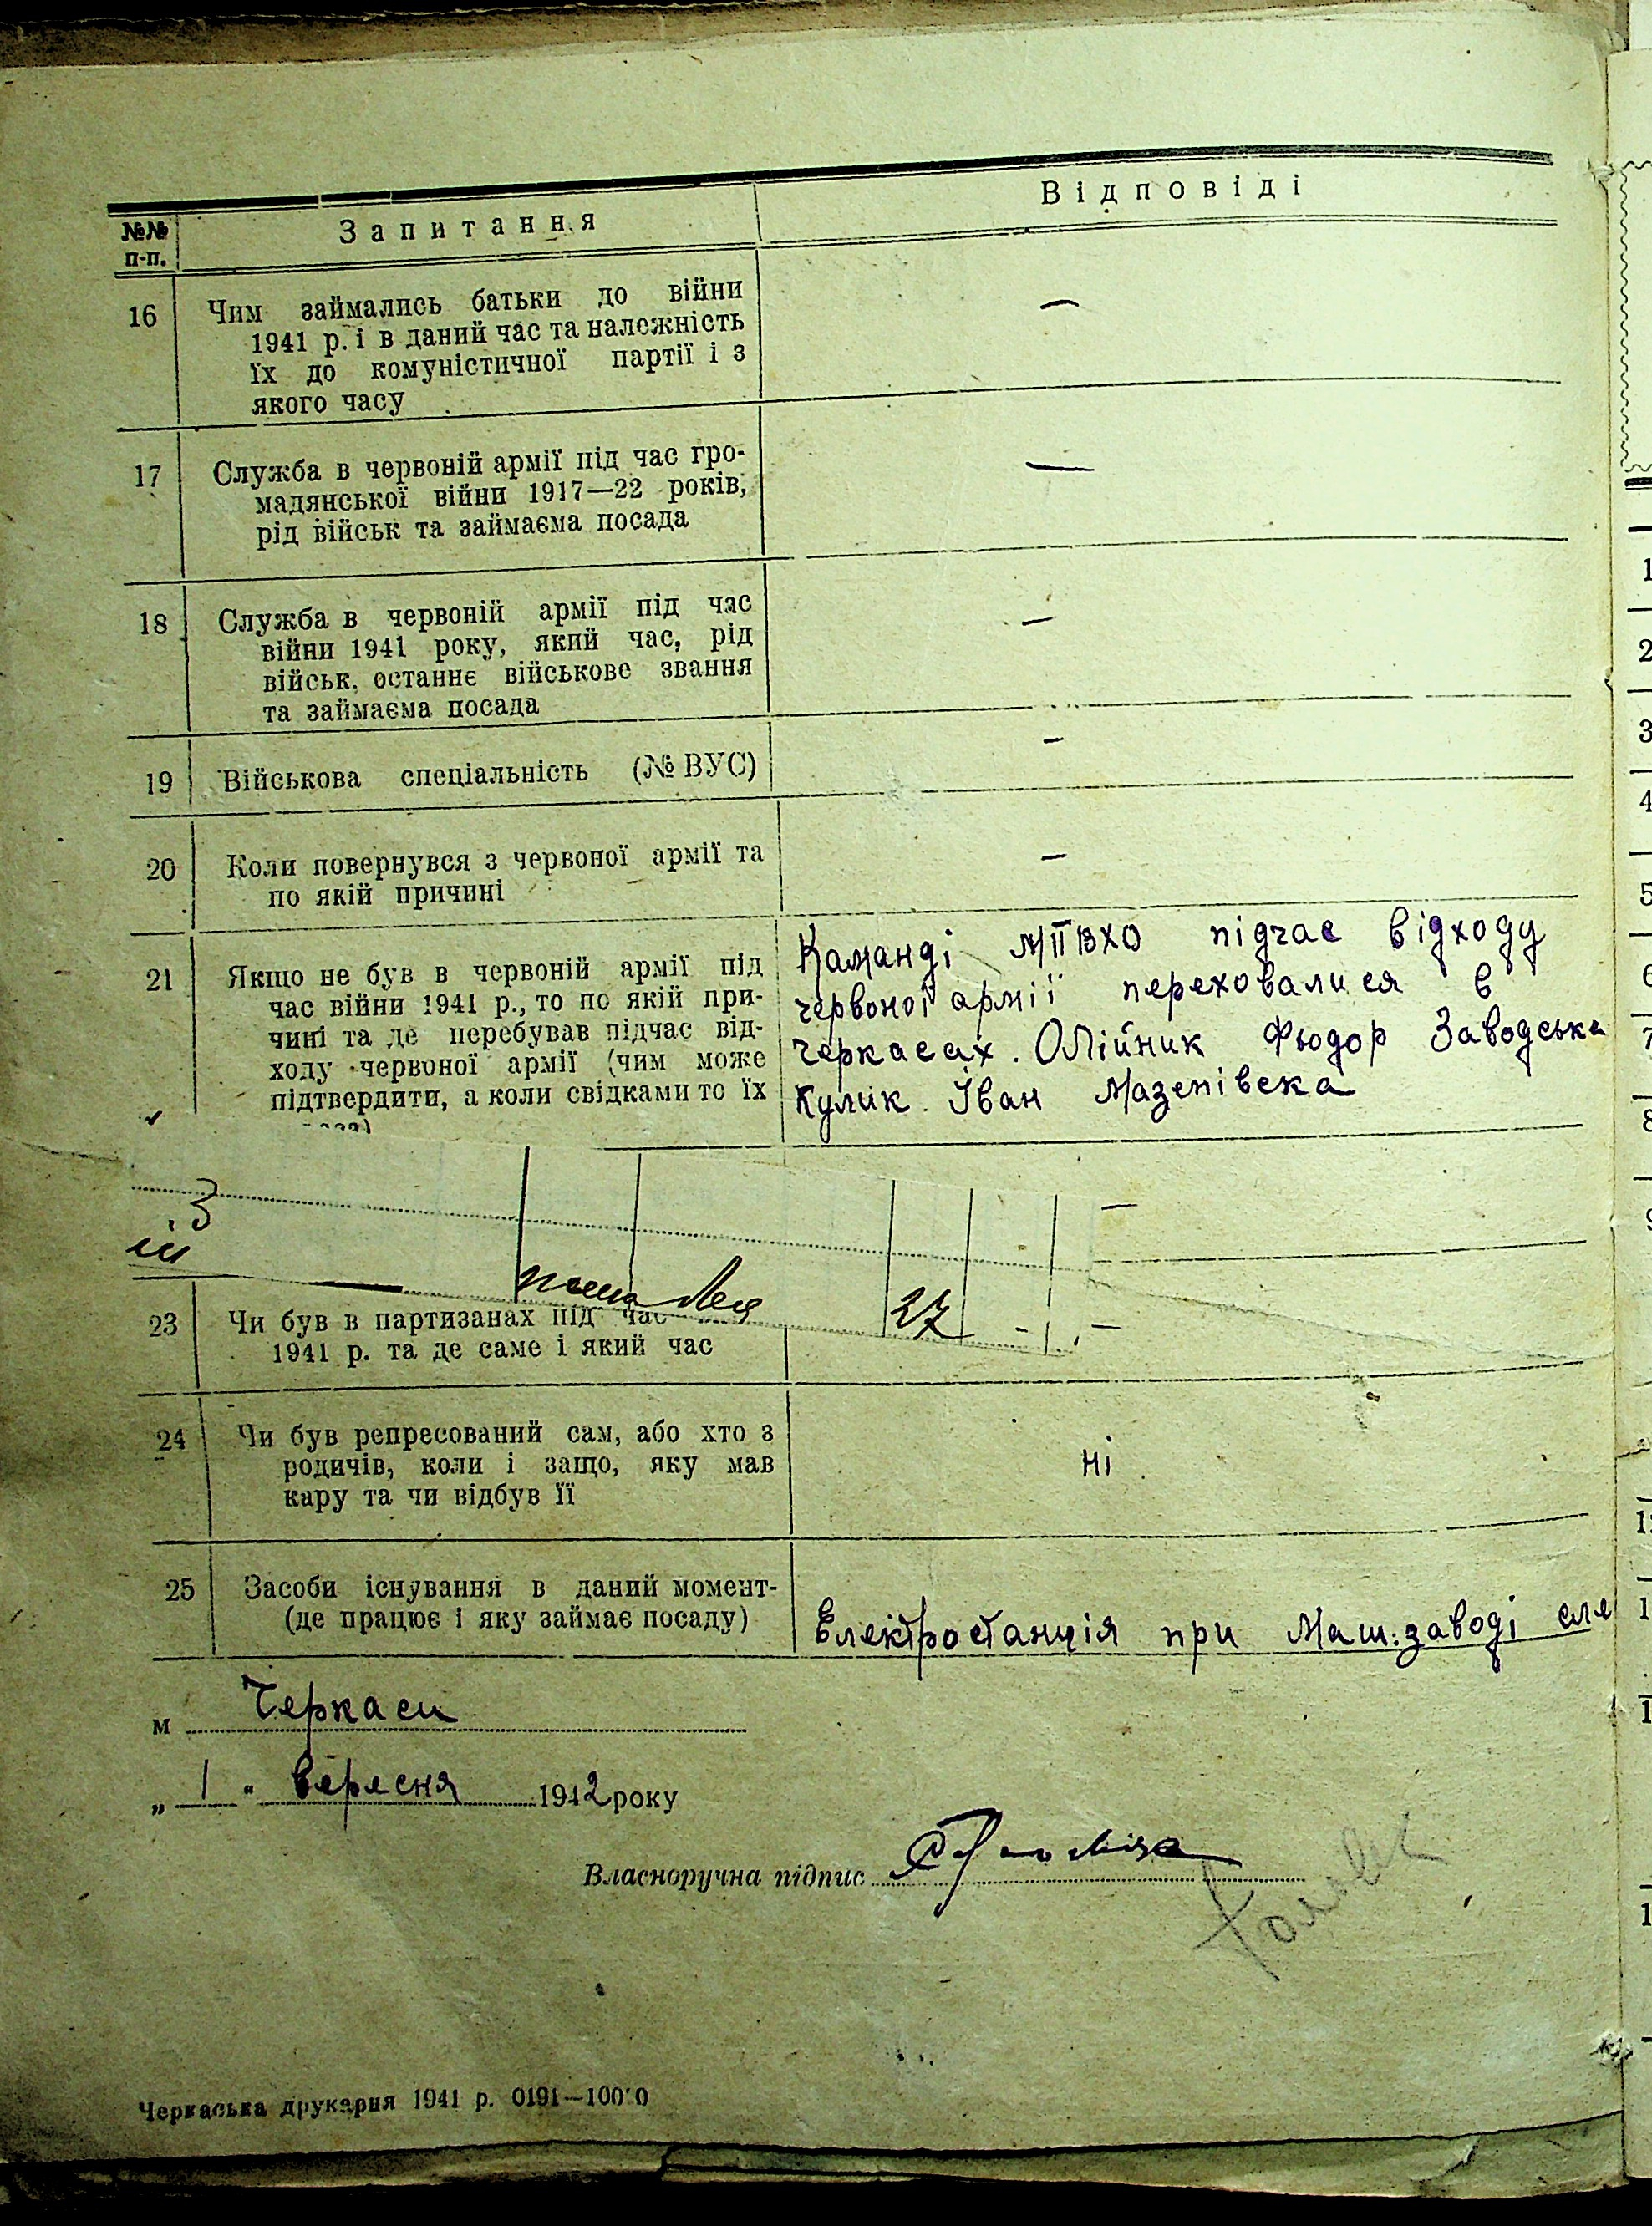 №№ п-п.
Запитання
Відповіді
16
Чим займались батьки до війни
1941 р. і в даний час та належність
їх до комуністичної партії і з
якого часу
—
17
Служба в червоній армії під час гро-
мадянської війни 1917—22 років,
рід військ та займаєма посада
—
18
Служба в червоній армії під час
війни 1941 року, який час, рід
військ, останнє військове звання
та займаєма посада
—
19
Військова спеціальність (№ ВУС)
—
20
Коли повернувся з червоної армії та
по якій причині
—
21
Якщо не був в червоній армії під
час війни 1941 р., то по якій при-
чині та де перебував підчас від-
ходу червоної армії (чим може
підтвердити, а коли свідками то їх
Команді МПВХО підчас відходу
червоної армії переховалися в
Черкасах. Олійник Фьодор Заводська
Кулик Іван Мазепівска
—
27
23
Чи був в партизанах під час
1941 р. та де саме і який час
—
24
Чи був репресований сам, або хто з
родичів, коли і защо, яку мав
кару та чи відбув її
ні
25
Засоби існування в даний момент-
(де працює і яку займає посаду)
Електростанція при Маш:заводі сле
м Черкаси
„ 1 " вересня 1942 року
Власноручна підпис
Черкаська друкарня 1941 р. 0191—10000